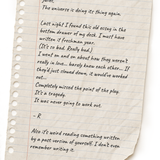 The universe is doing its thing again.
Last night I found this old essay in the
bottom drawer of my desk. I must have
written it freshman year.
(It's so bad. Really bad.)
I went on and on about how they weren't
really in love... barely knew each other... If
they'd just slowed down, it would've worked
out...
Completely missed the point of the play.
It's a tragedy.
It was never going to work out.
- R
Also it's weird reading something written
by a past version of yourself. I don't even
remember writing it.